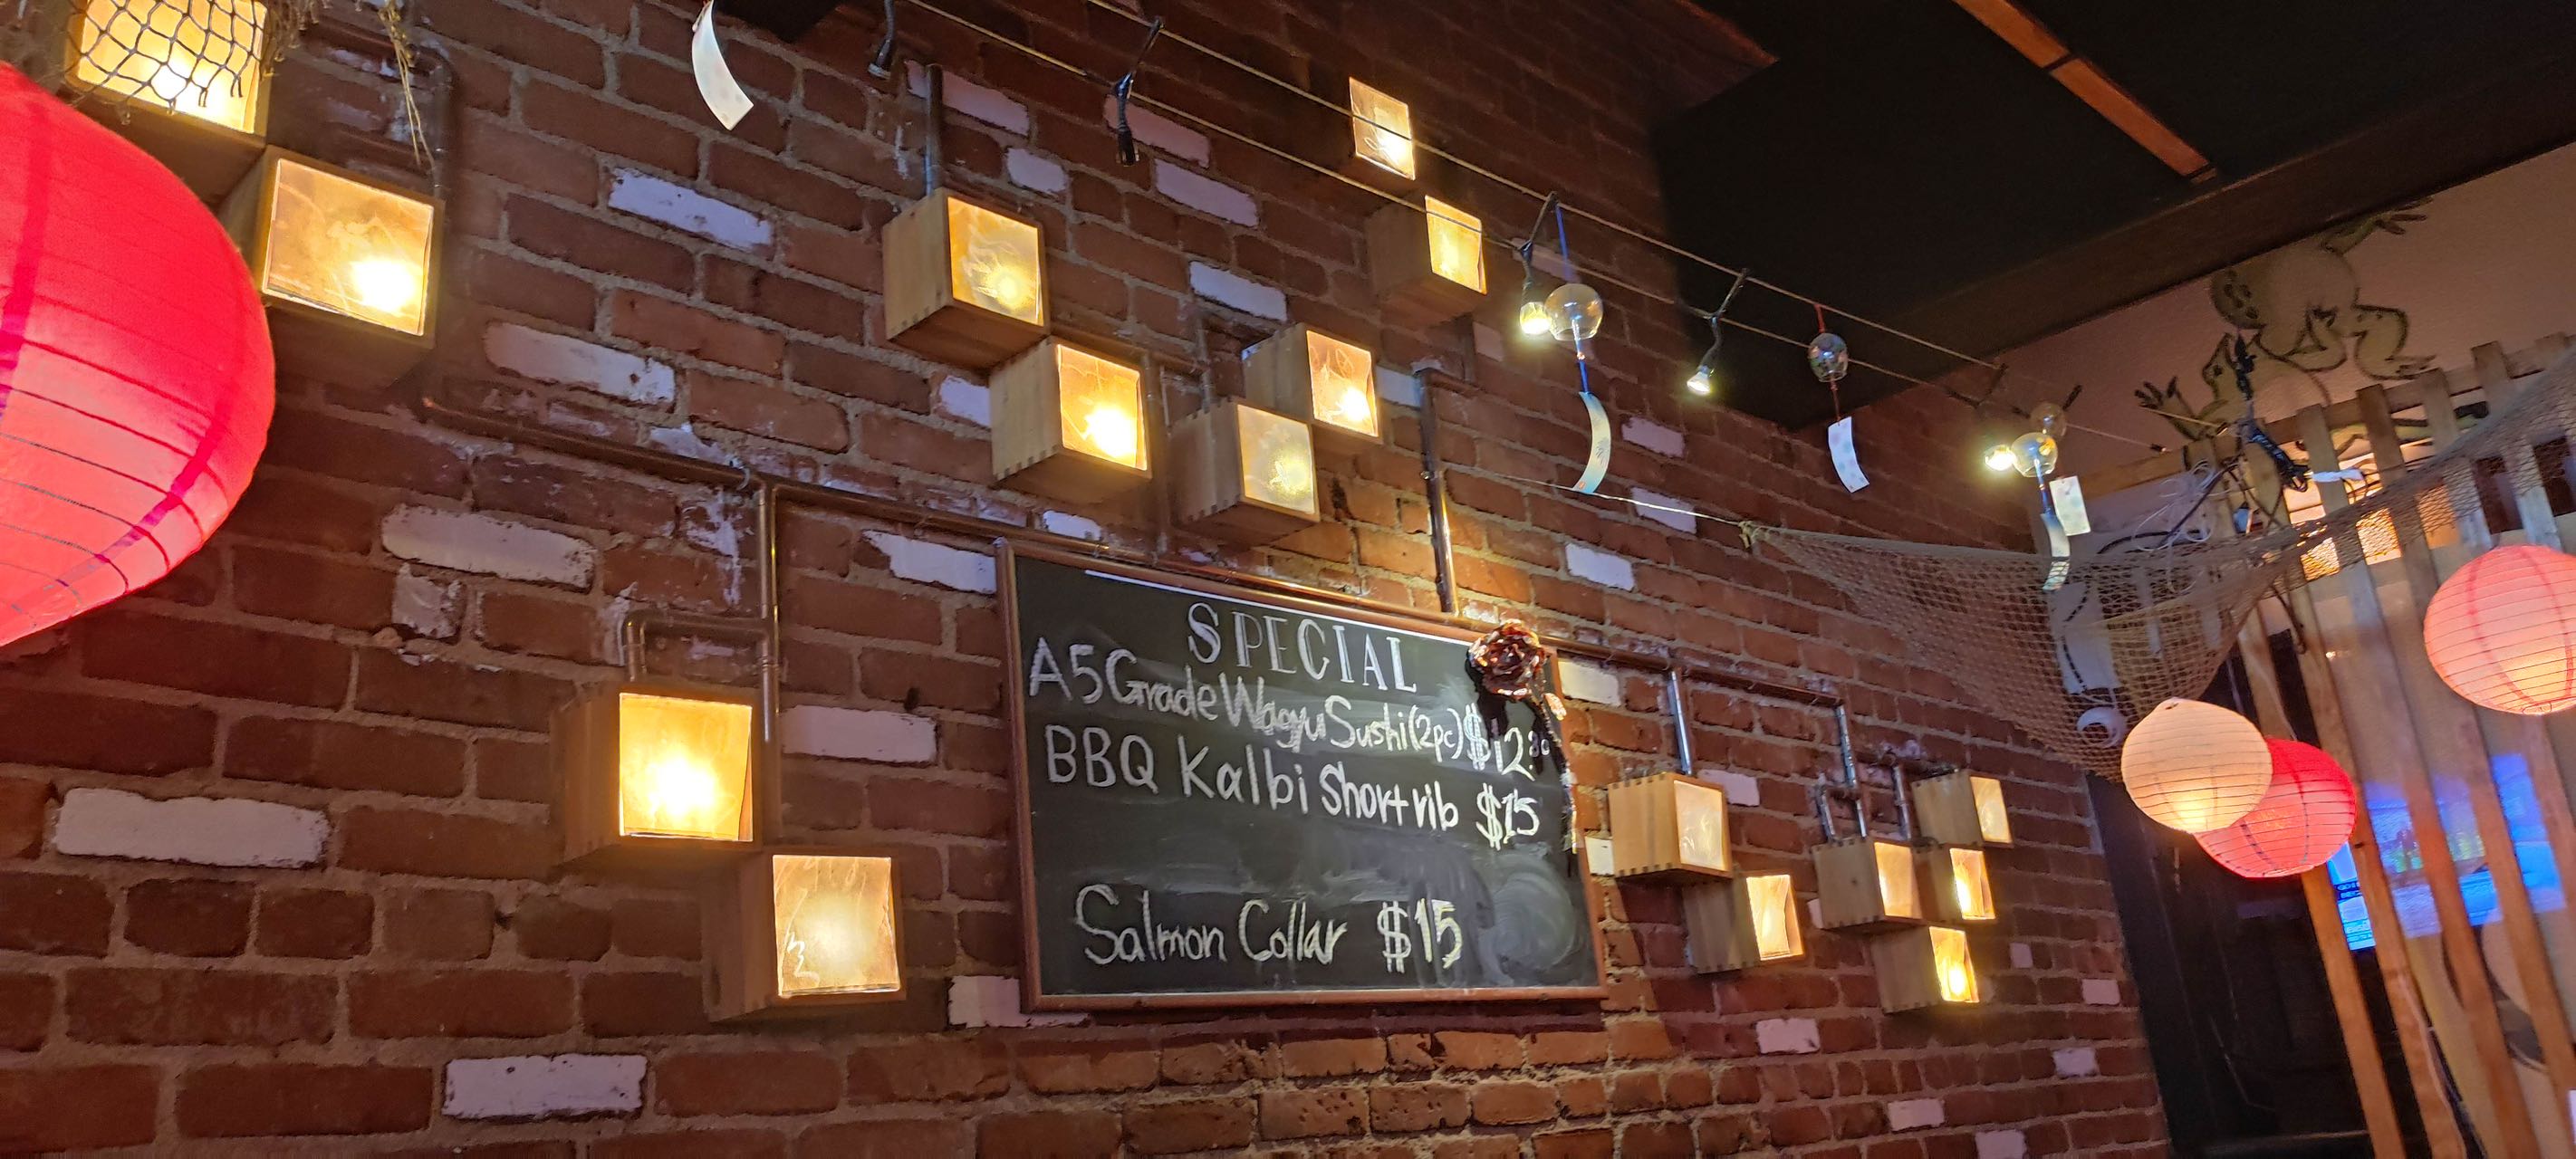 SPECIAL
A5 Grade Wagyu Sushi (2pc) $12.80
BBQ Kalbi Short rib $15
Salmon Collar $15